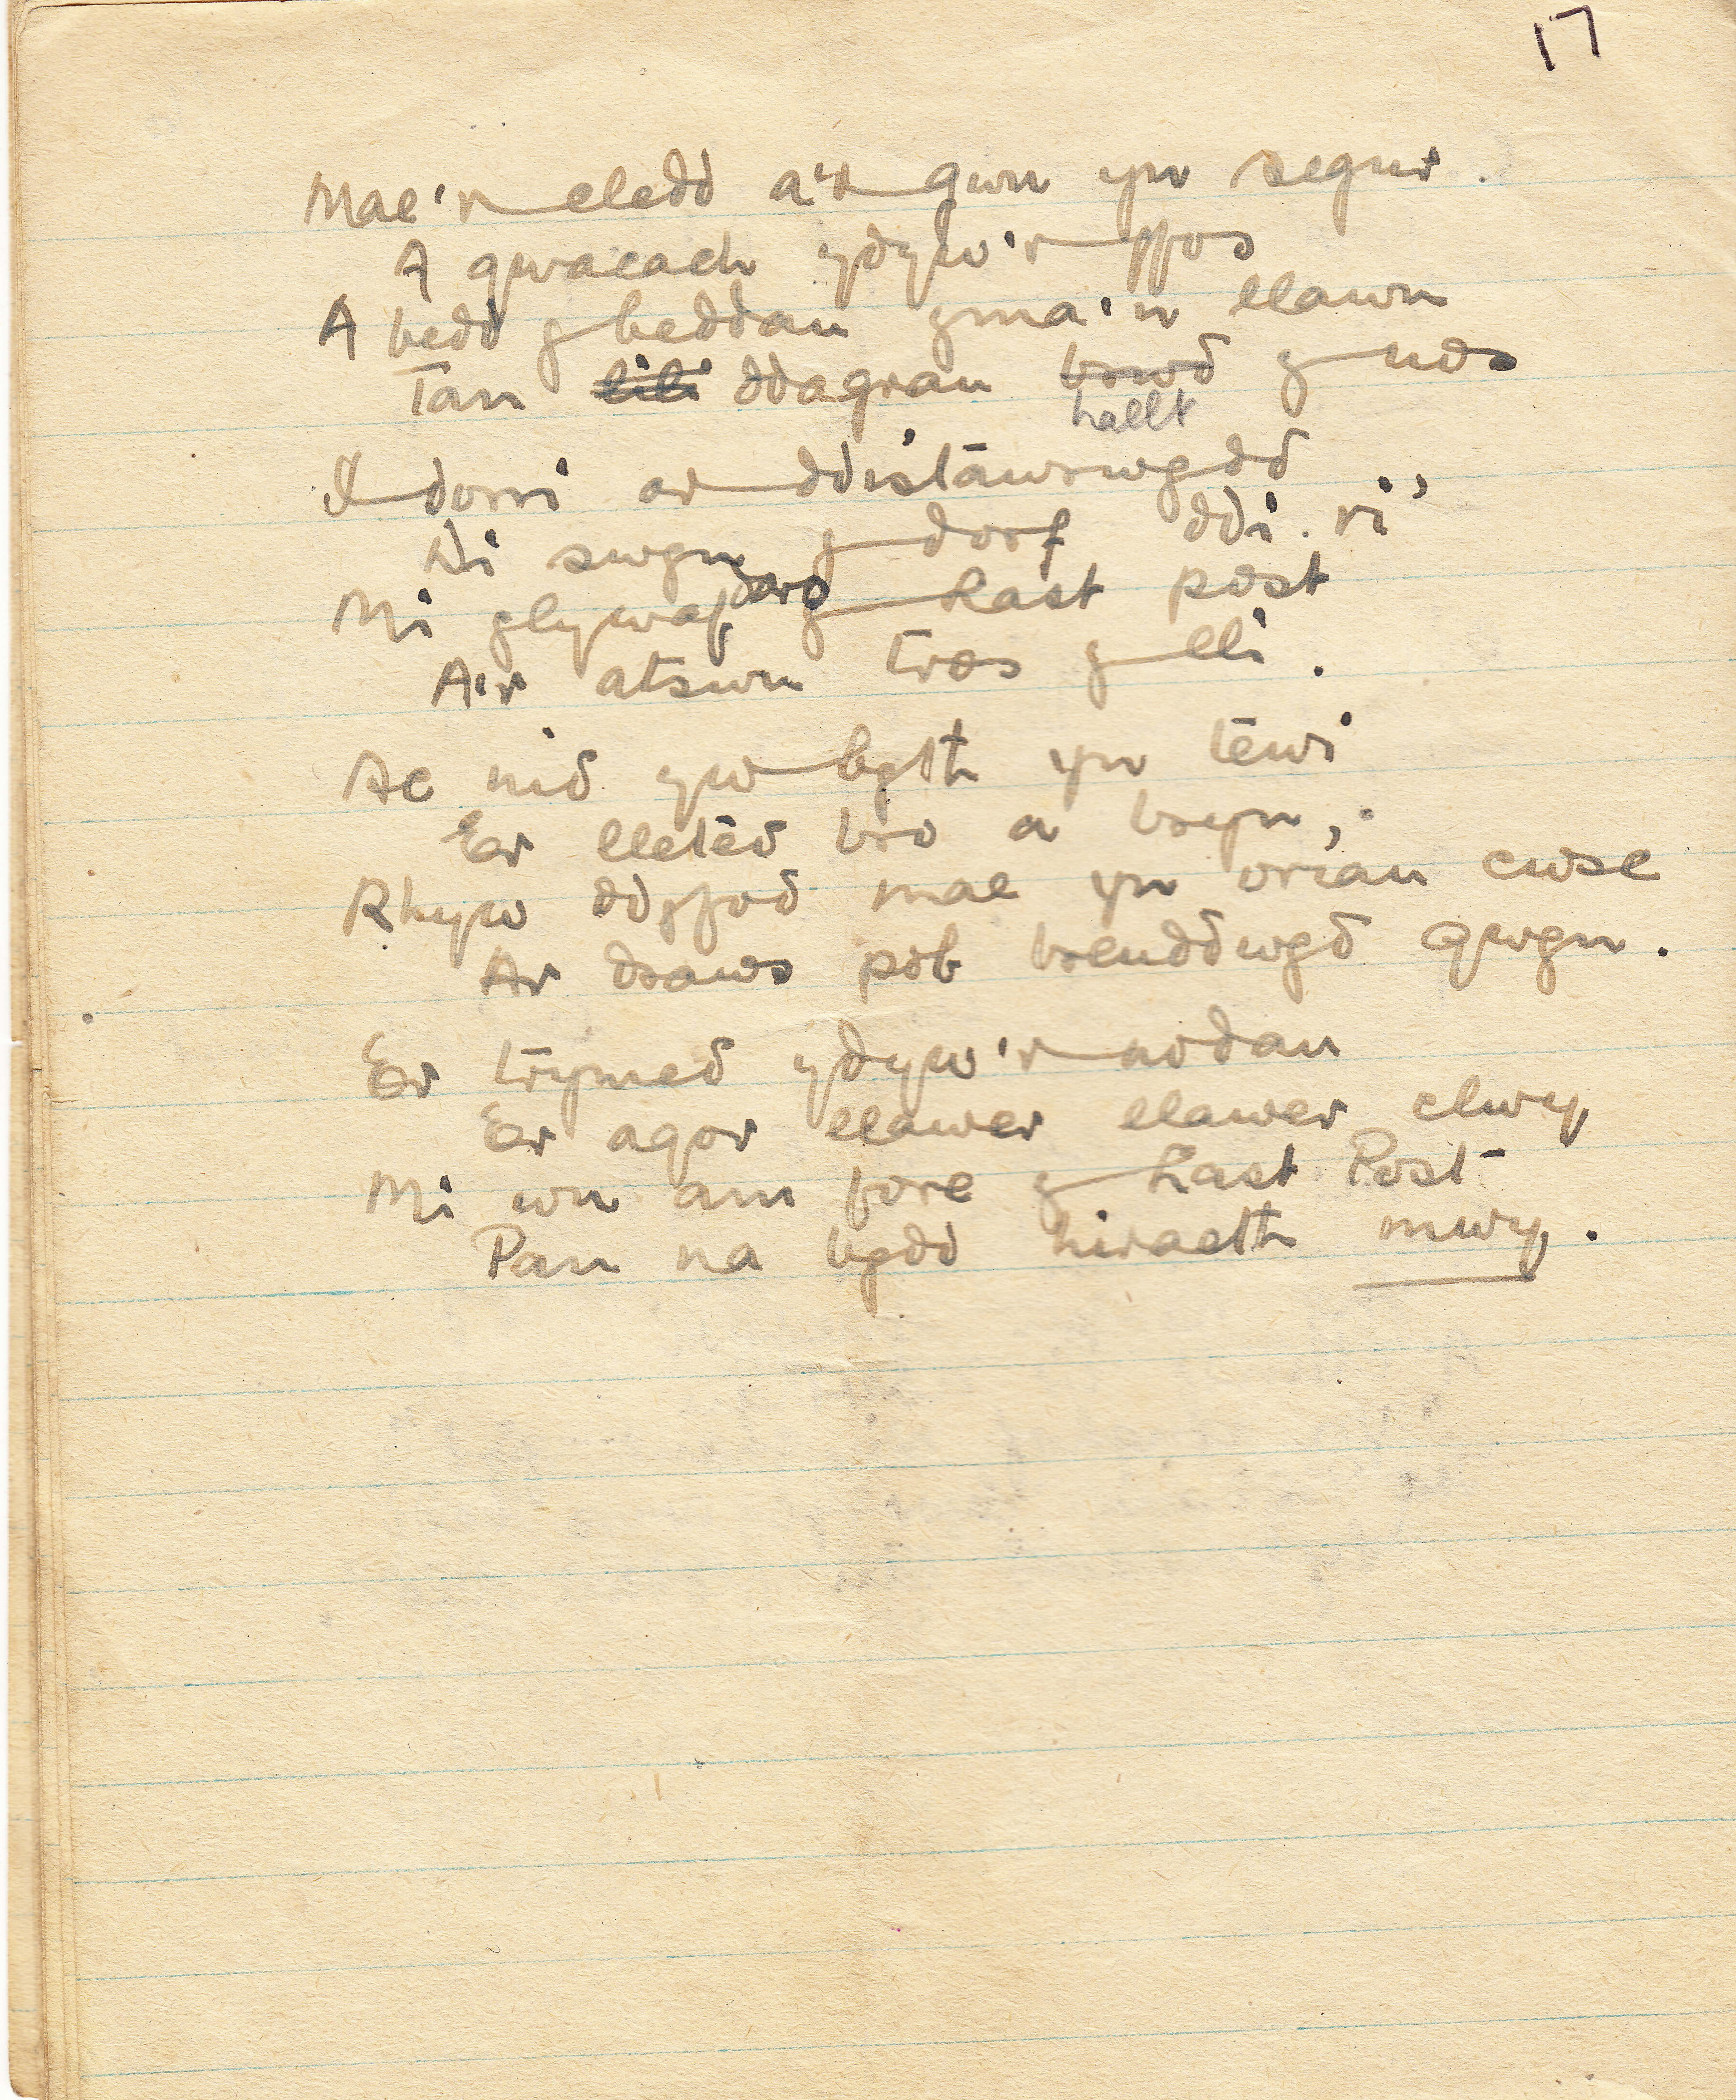 17
Mae'r cledd a'r gwn yn segur.
A gwacach ydyw'r ffos
A bedd y beddau yma'n llawn
Tan lili ddagrau brwd y nos
hallt
I dorri ar ddistawrwydd
Di swyn y dorf ddi-ri'
Mi glywaf daro y Last post
A'i atswn tros y lli.
Ac nid yw byth yn tewi
Er lleted bro a bryn,
Rhyw ddyfod mae yn oriau cwsc
Ar draws pob breuddwyd gwyn.
Er trymed ydyw'r nodau
Er agor llawer llawer clwy,
Mi wn am fore y Last Post
Pan na bydd hiraeth mwy.